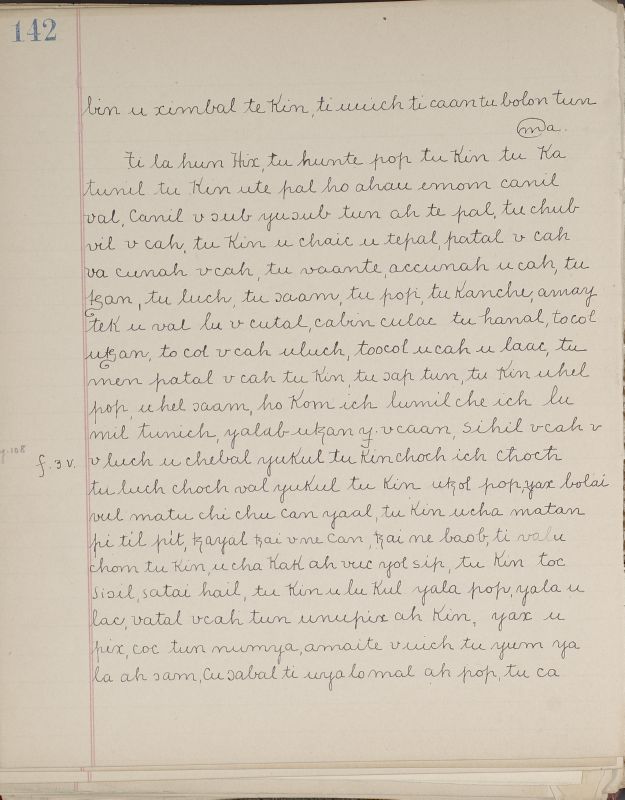 142
bin u ximbal te kin, ti uuich ti caan tu bolon tun
ma.
Ti la hun Hix, tu hunte pop tu kin tu ka
tunil tu kin ute pal ho ahau emom canil
val, Canil v sub yusub tun ah te pal, tu chub
vil v cah, tu kin u chaic u tepal, patal v cah
va cunah v cah, tu vaante, accunah u cah, tu
ꜩan, tu luch, tu ɔaam, tu pop, tu kanche, amay
tek u val lu v cutal, cabin culac tu hanal, tocol
uꜩan, to col v cah uluch, toocol u cah u laac, tu
men patal v cah tu kin, tu ɔap tun, tu kin uhel
pop, uhel ɔaam, ho kom ich lumil che ich lu
mil tunich, yalab uꜩan y. v caan, sihil v cah v
f. 3. v. v luch u chebal yukul tu kin choch ich choch
tu luch choch val yukul tu kin uꜩol pop, yax bolai
vul matu chi chu can yaal, tu kin ucha matan
pi til pit, ꜩayal ꜩai v ne can, ꜩai ne baob, ti valu
chom tu kin, u cha kak ah vuc yol sip, tu kin toc
sisil, satai hail, tu kin u lu kul yala pop, yala u
lac, vatal v cah tun unupix ah kin, yax u
pix, coc tun numya, amaite v uich tu yum ya
la ah ɔam, Cu ɔabal ti uyalomal ah pop, tu ca